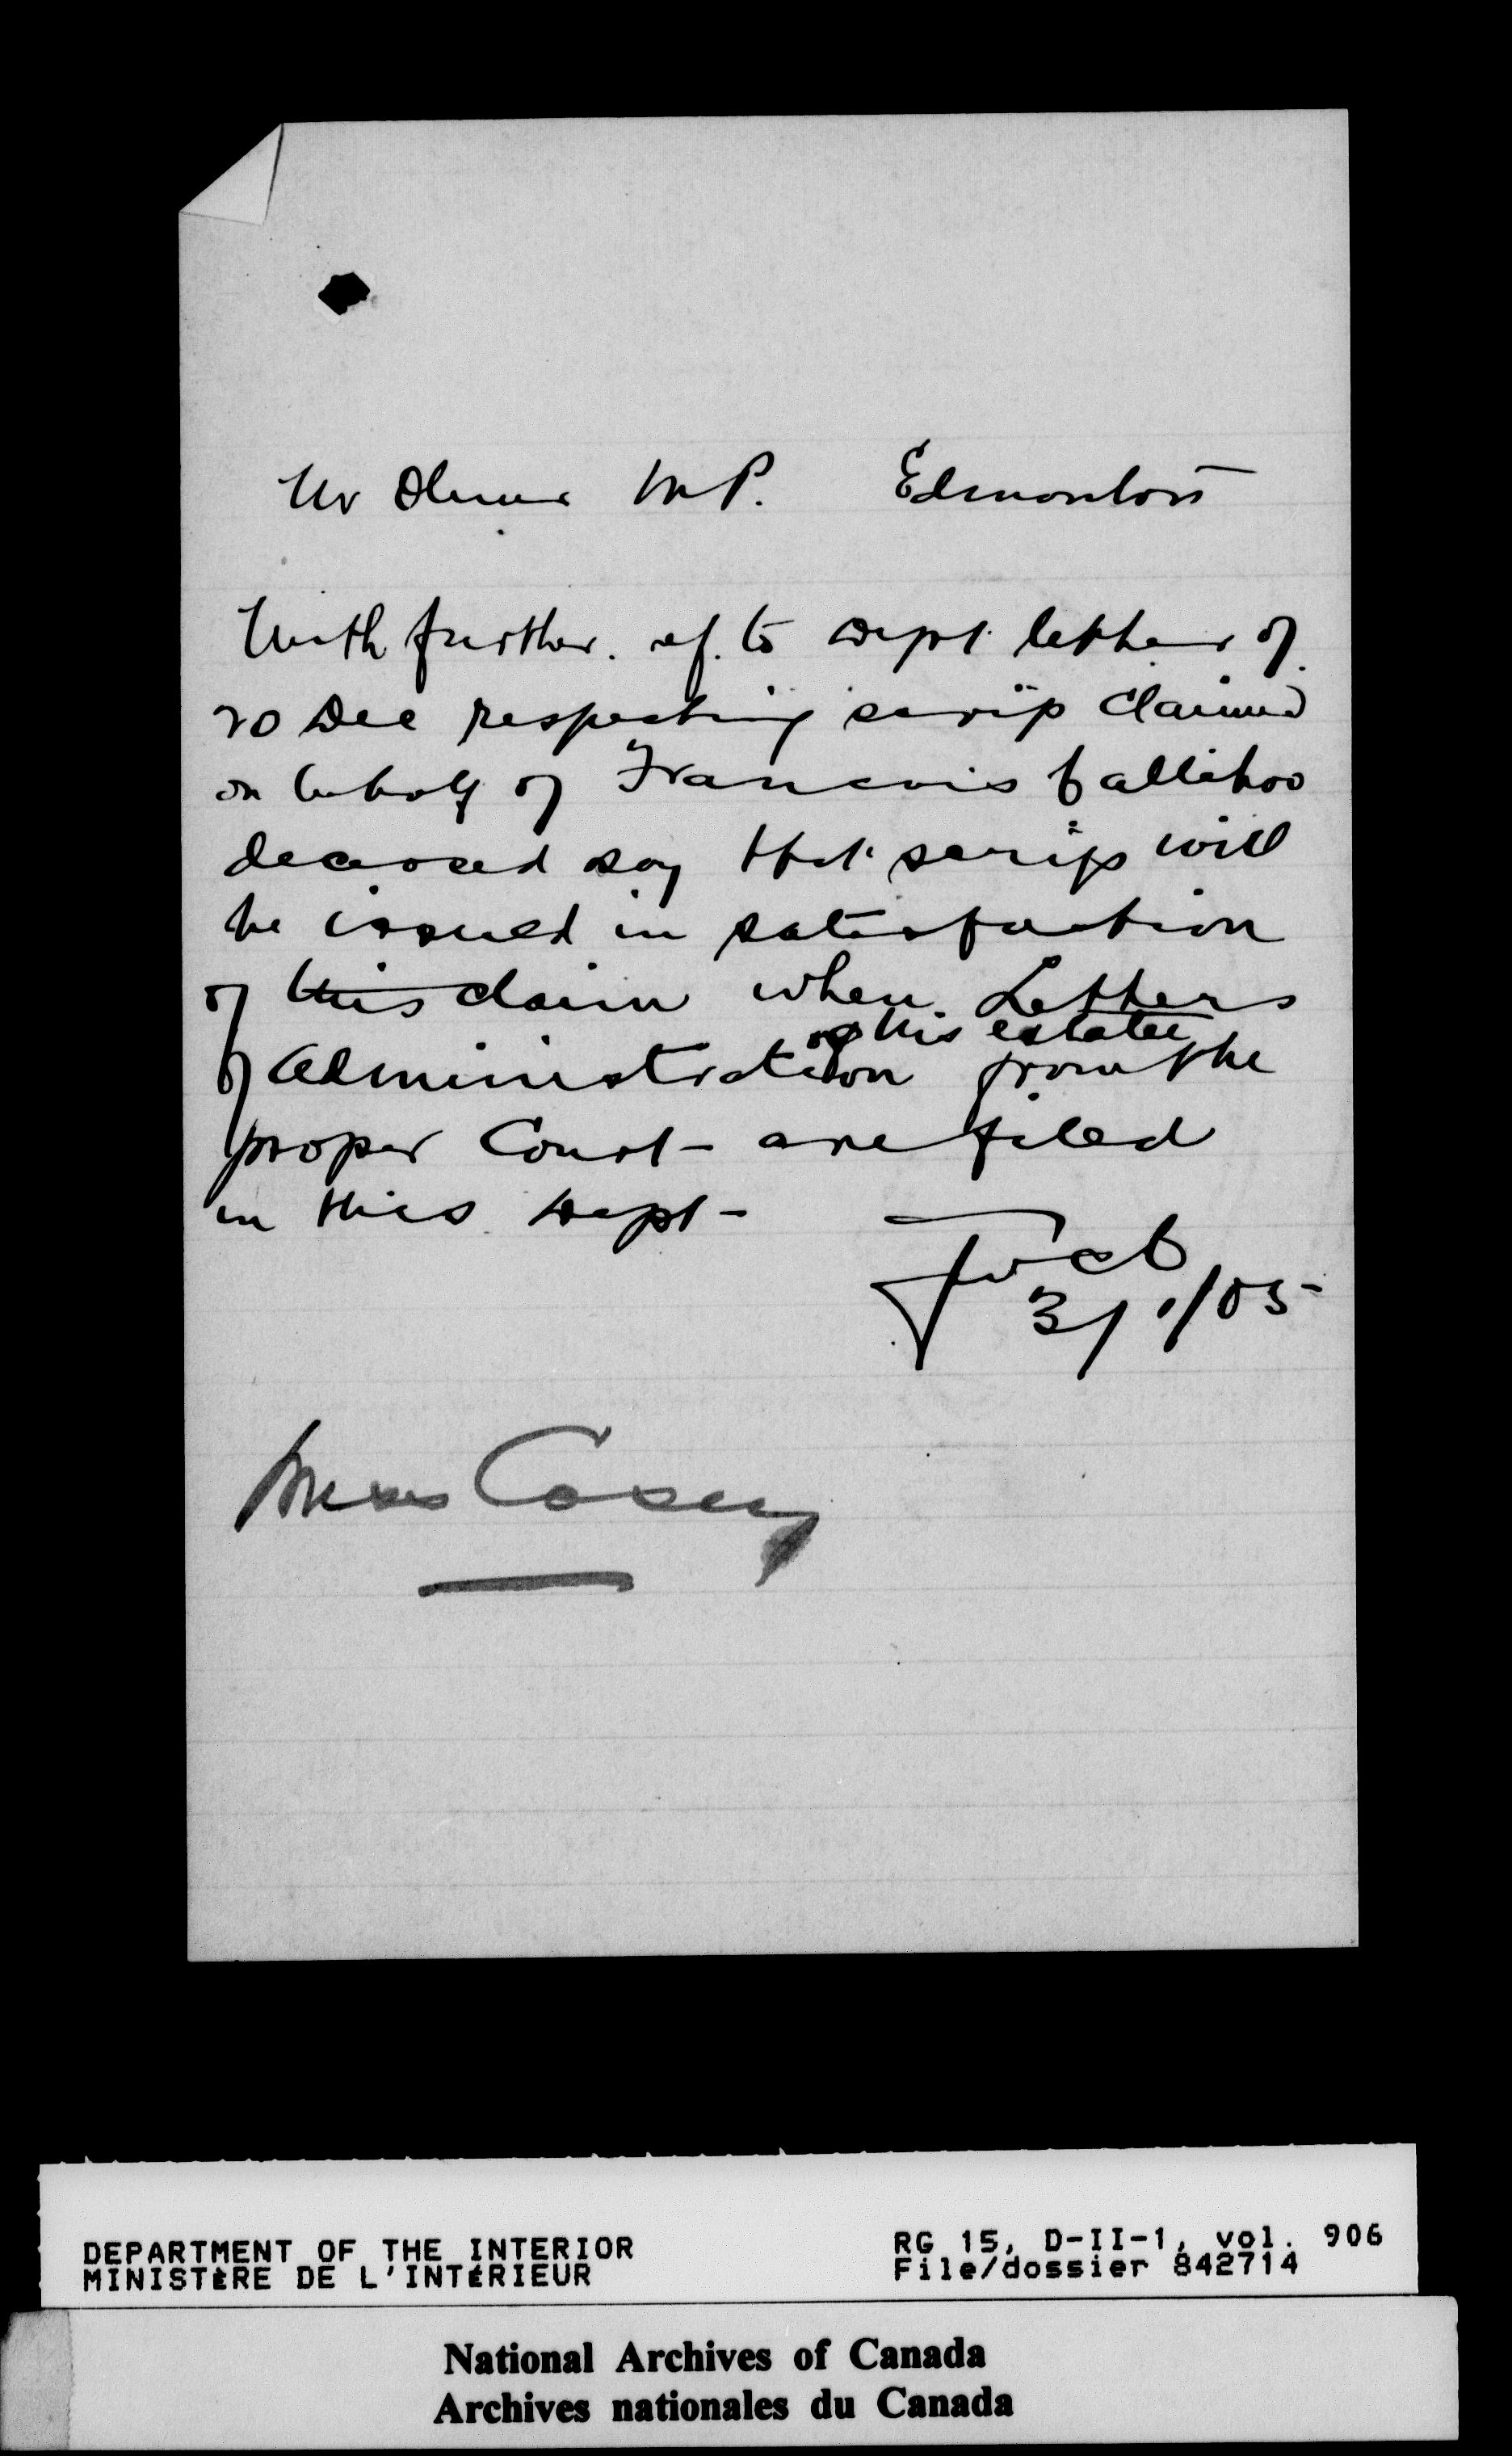 Mr Oliver M.P. Edmonton
With further. ref. to Dept letter of
20 Dec respecting scrip claimed
on behalf of Francois Callihoo
deceased say that scrip will
be issued in satisfaction
of this claim when Letters
of his estate
of Administration from the
proper Court - are filed
in this Dept -
3/1/05
Miss Casey
DEPARTMENT OF THE INTERIOR
MINISTÈRE DE L'INTÉRIEUR
RG 15, D-II-1, vol. 906
File/dossier 842714
National Archives of Canada
Archives nationales du Canada